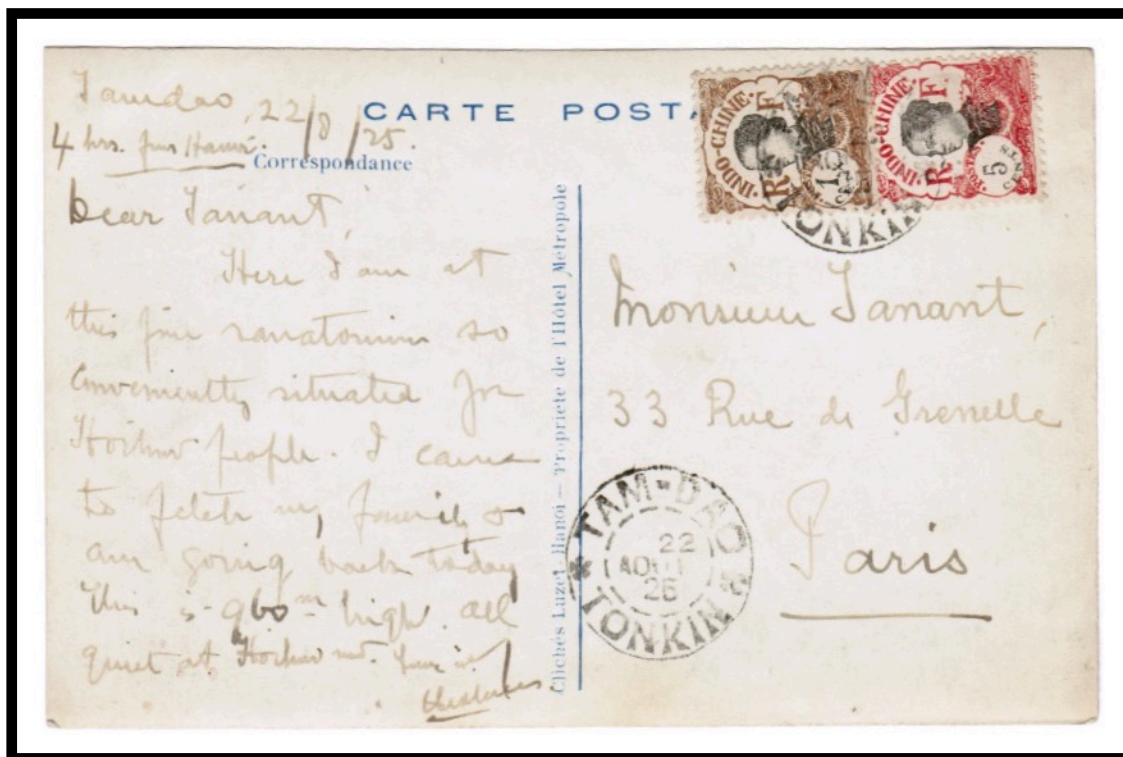 Tamdao, 22/8/25.
4 hrs. from Hanoi.
CARTE POSTA
Correspondance
Dear Tanant,
Here I am at
this fine sanatorium so
conveniently situated for
Hoihow people. I came
to fetch my family &
am going back today
This is 960m high. All
quiet at Hoihow
Clichés Luzet-Hanoi — Propriete de l'Hôtel Métropole
INDO-CHINE
R F
INDO-CHINE
R F
5
CENTS
TONKIN
Monsieur Tanant,
33 Rue de Grenelle
Paris
TAM-DAO
22
AOUT
TONKIN